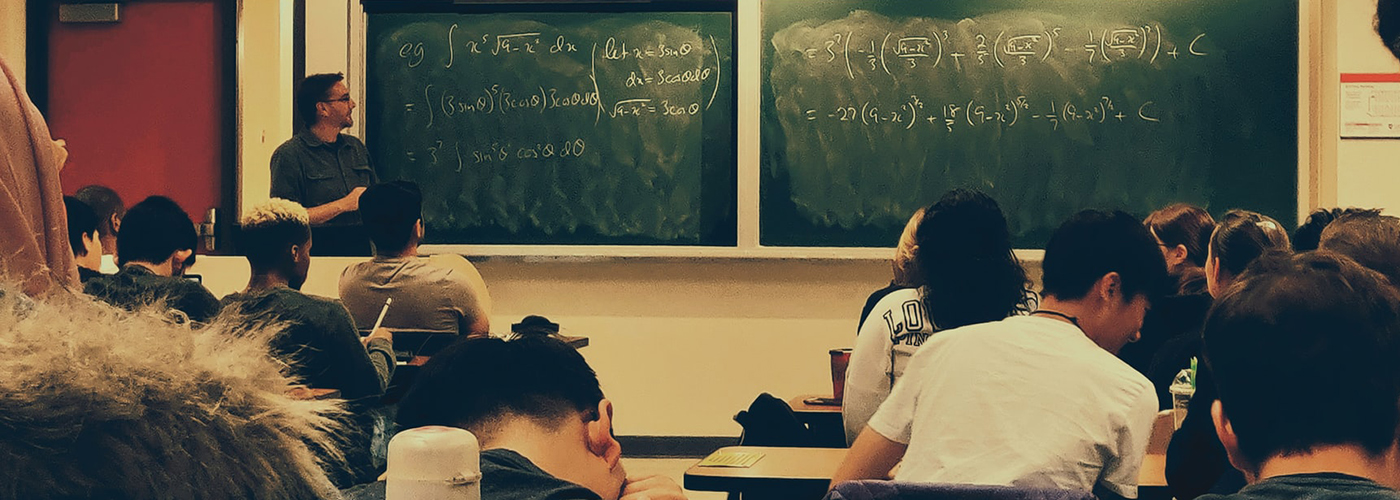 eg ∫ x⁵ √9-x² dx (let x = 3sinθ
dx = 3cosθdθ
= ∫ (3sinθ)⁵ (3cosθ) 3cosθdθ √9-x² = 3cosθ)
= 3⁷ ∫ sin⁵θ cos²θ dθ
= 3⁷ ( -1/3 (√9-x²/3)³ + 2/5 (√9-x²/3)⁵ - 1/7 (√9-x²/3)⁷ ) + C
= -27 (9-x²)^3/2 + 18/5 (9-x²)^5/2 - 1/7 (9-x²)^7/2 + C